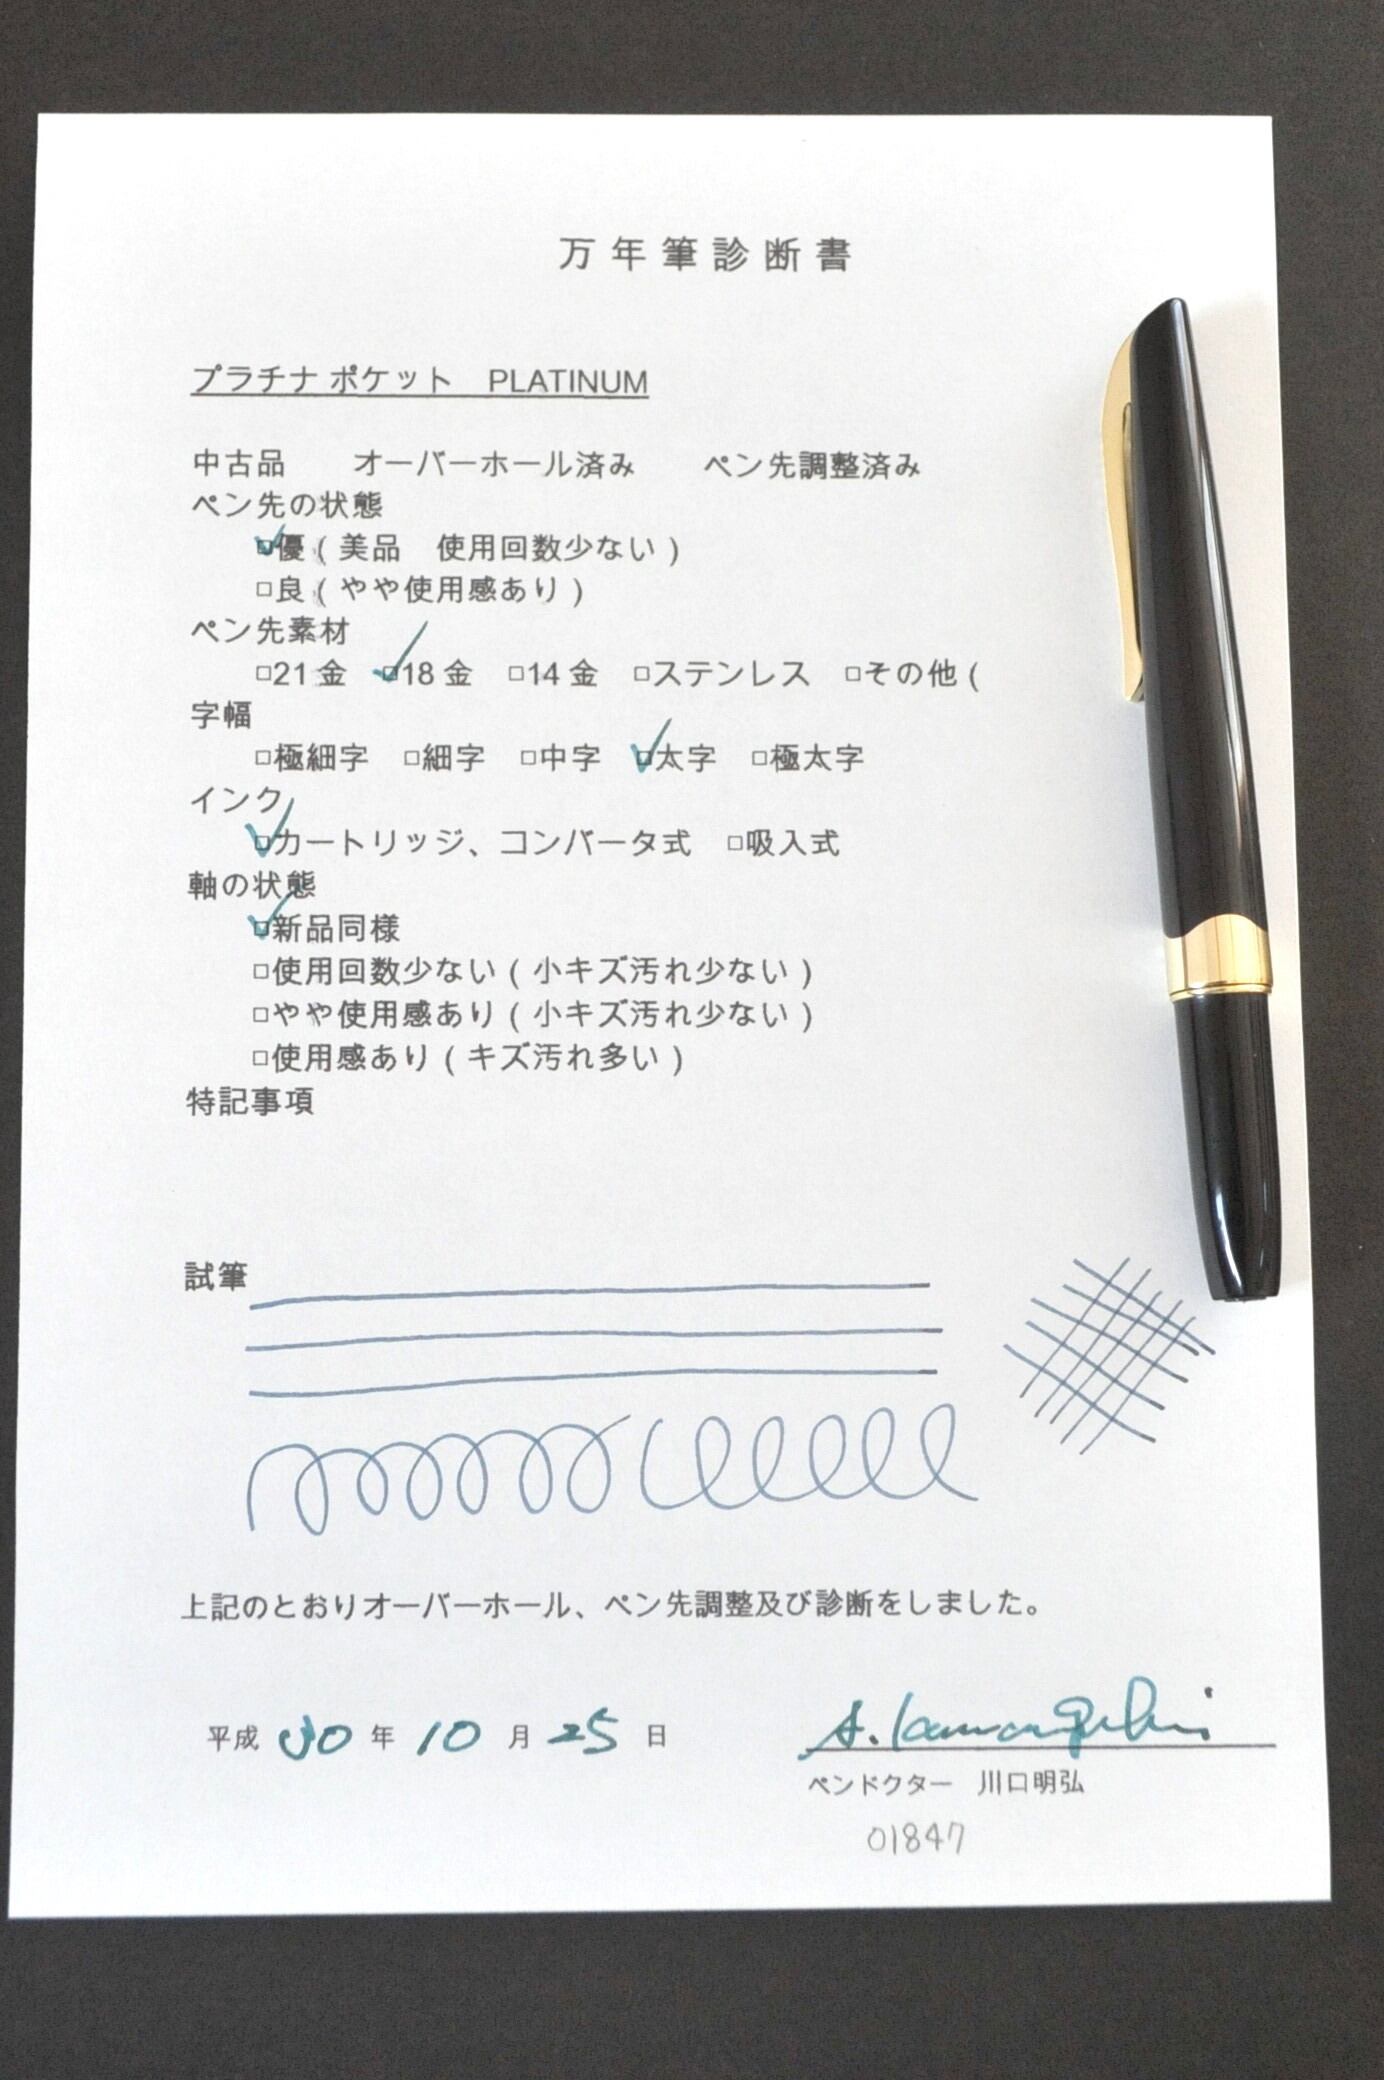 万年筆診断書
プラチナ ポケット　PLATINUM
中古品　　オーバーホール済み　　ペン先調整済み
ペン先の状態
□優（美品　使用回数少ない）
□良（やや使用感あり）
ペン先素材
□21 金　□18 金　□14 金　□ステンレス　□その他（
字幅
□極細字　□細字　□中字　□太字　□極太字
インク
□カートリッジ、コンバータ式　□吸入式
軸の状態
□新品同様
□使用回数少ない（小キズ汚れ少ない）
□やや使用感あり（小キズ汚れ少ない）
□使用感あり（キズ汚れ多い）
特記事項
試筆
上記のとおりオーバーホール、ペン先調整及び診断をしました。
平成 30 年 10 月 25 日
A. Kawaguchi
ペンドクター　川口明弘
01847